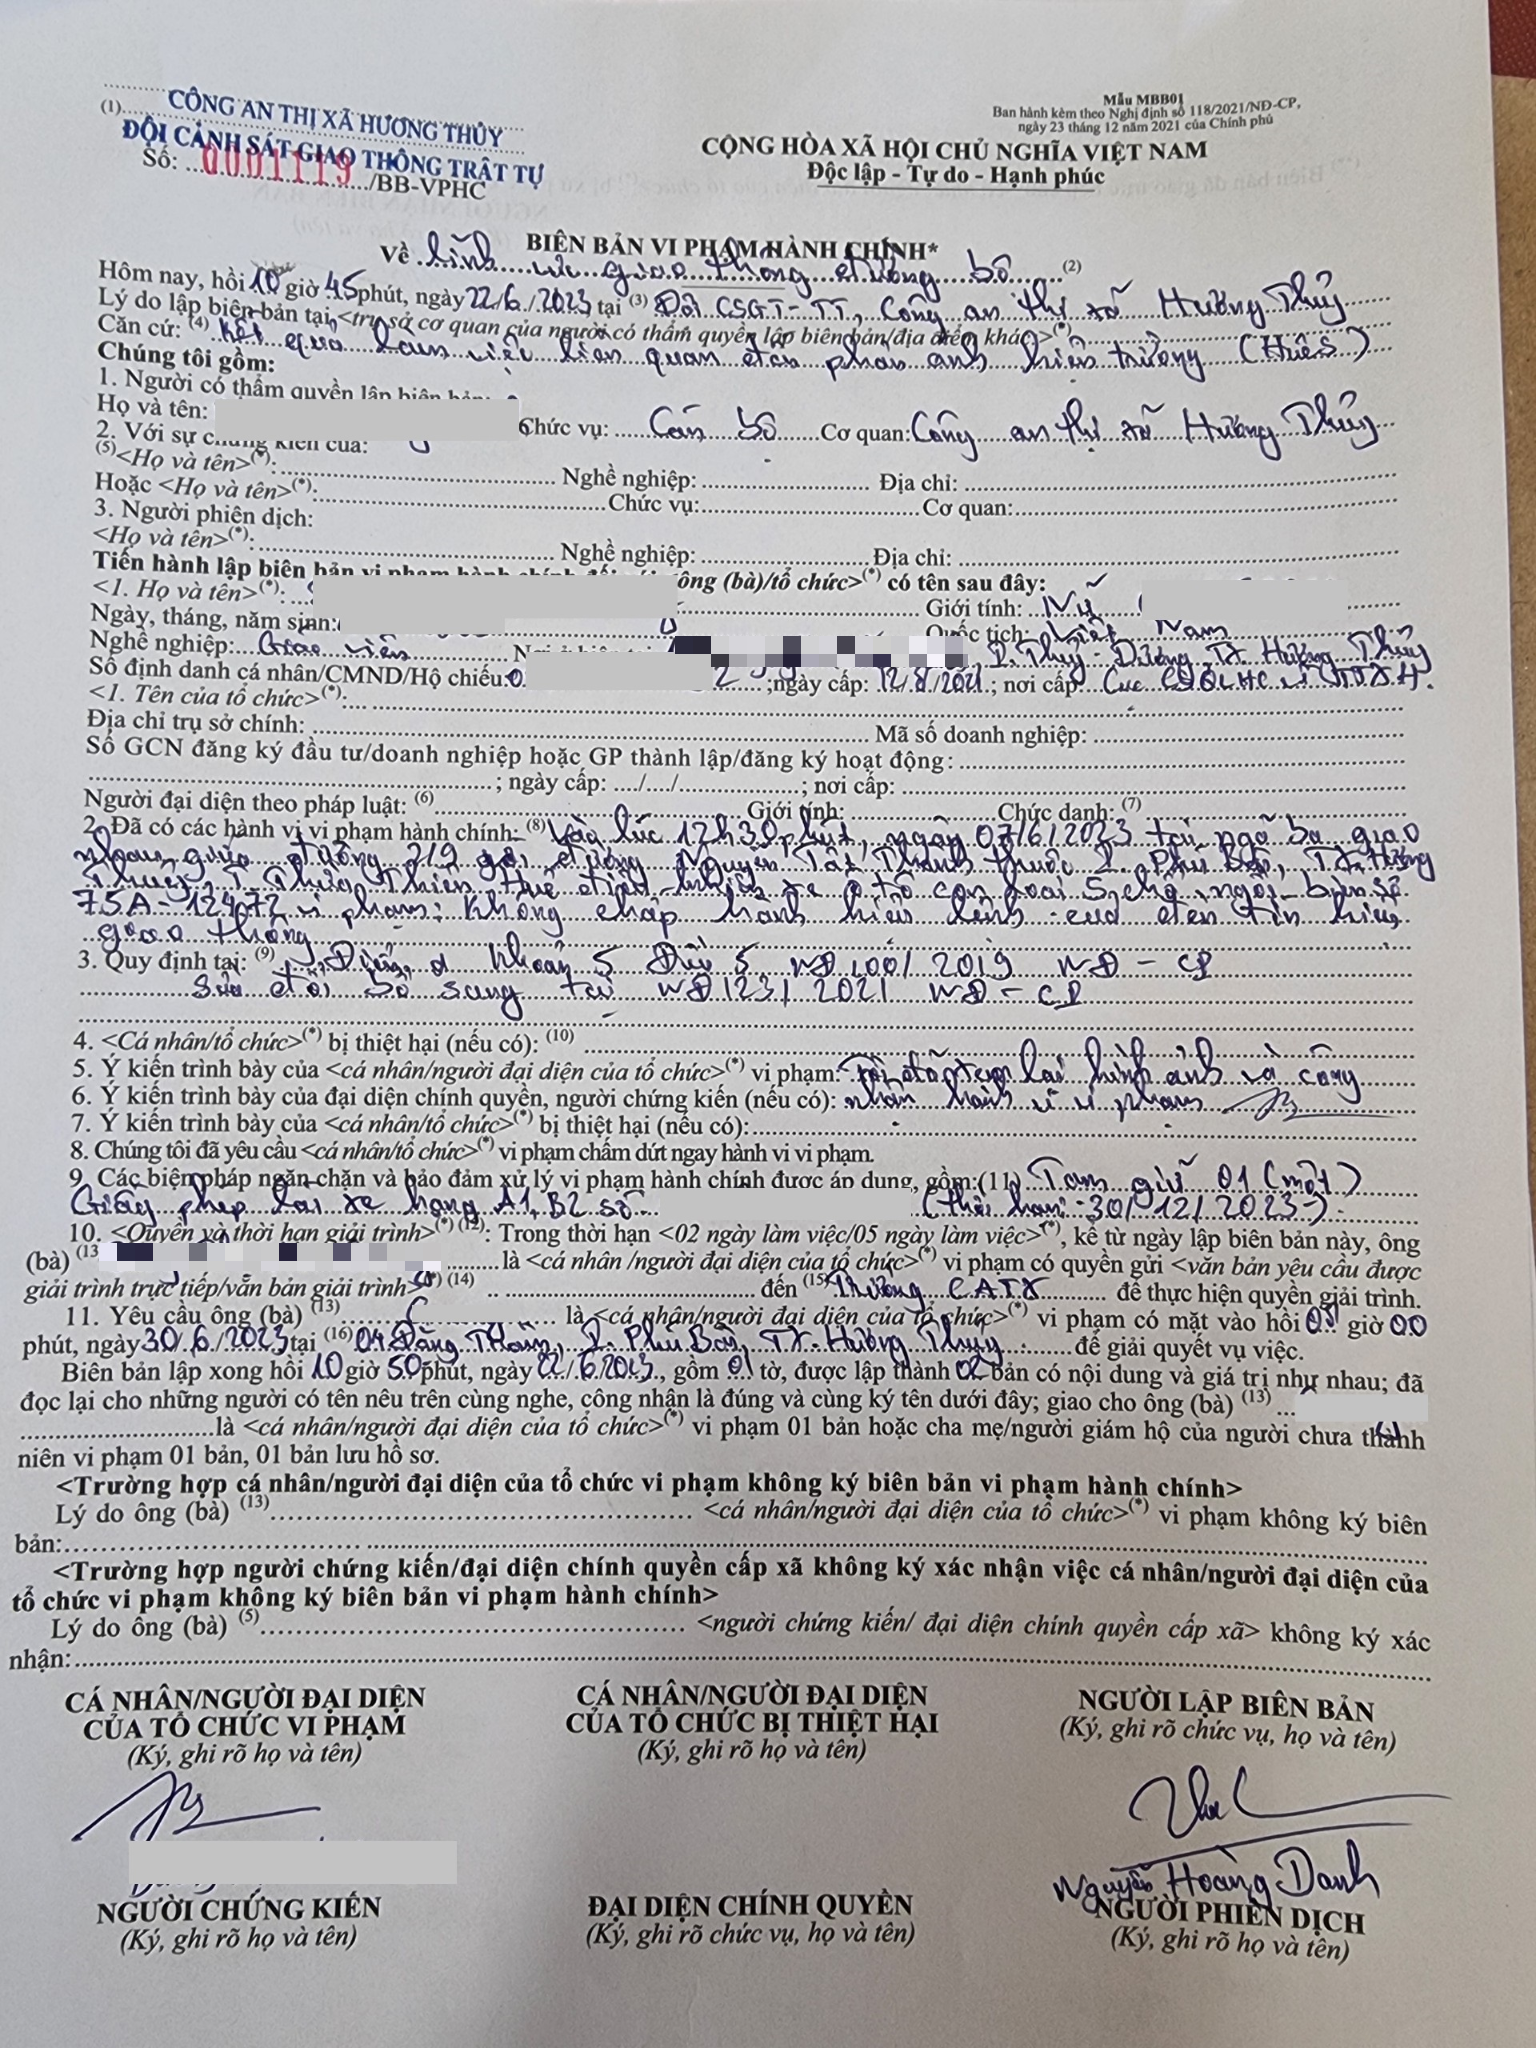 Mẫu MBB01
Ban hành kèm theo Nghị định số 118/2021/NĐ-CP,
ngày 23 tháng 12 năm 2021 của Chính phủ
(1) CÔNG AN THỊ XÃ HƯƠNG THỦY
ĐỘI CẢNH SÁT GIAO THÔNG TRẬT TỰ
Số: 0001119/BB-VPHC
CỘNG HÒA XÃ HỘI CHỦ NGHĨA VIỆT NAM
Độc lập - Tự do - Hạnh phúc
BIÊN BẢN VI PHẠM HÀNH CHÍNH*
Về lĩnh vực giao thông đường bộ (2)
Hôm nay, hồi 10 giờ 45 phút, ngày 22/6/2023 tại (3) Đội CSGT-TT, Công an thị xã Hương Thủy
Lý do lập biên bản tại <trụ sở cơ quan của người có thẩm quyền lập biên bản/địa điểm khác>(*)
Căn cứ: (4) Kết quả làm việc liên quan đến phản ánh hiện trường (HueS)
Chúng tôi gồm:
1. Người có thẩm quyền lập biên bản:
Họ và tên: Chức vụ: Cán bộ Cơ quan: Công an thị xã Hương Thủy
2. Với sự chứng kiến của:
(5)<Họ và tên>(*): Nghề nghiệp: Địa chỉ:
Hoặc <Họ và tên>(*): Chức vụ: Cơ quan:
3. Người phiên dịch:
<Họ và tên>(*): Nghề nghiệp: Địa chỉ:
Tiến hành lập biên bản vi phạm hành chính đối với <ông (bà)/tổ chức>(*) có tên sau đây:
<1. Họ và tên>(*): Giới tính: Nữ
Ngày, tháng, năm sinh: Quốc tịch: Việt Nam
Nghề nghiệp: Giáo viên Nơi ở hiện tại: P. Thủy Dương TX. Hương Thủy
Số định danh cá nhân/CMND/Hộ chiếu: 0 ;ngày cấp: 12/8/2021; nơi cấp: Cục CSQLHC về TTXH.
<1. Tên của tổ chức>(*):
Địa chỉ trụ sở chính: Mã số doanh nghiệp:
Số GCN đăng ký đầu tư/doanh nghiệp hoặc GP thành lập/đăng ký hoạt động:
; ngày cấp: ..../..../............; nơi cấp:
Người đại diện theo pháp luật: (6) Giới tính: Chức danh: (7)
2. Đã có các hành vi vi phạm hành chính: (8) Vào lúc 12h30 phút, ngày 07/6/2023 tại ngã ba giao
nhau giữa đường 2/9 và đường Nguyễn Tất Thành thuộc P. Phú Bài, TX. Hương
Thủy, T. Thừa Thiên Huế điều khiển xe ô tô con loại 5 chỗ ngồi biển số
75A-124.72 vi phạm: Không chấp hành hiệu lệnh của đèn tín hiệu
giao thông
3. Quy định tại: (9) Điểm a Khoản 5 Điều 5 NĐ 100/2019 NĐ-CP
Sửa đổi bổ sung tại NĐ 123/2021 NĐ-CP
4. <Cá nhân/tổ chức>(*) bị thiệt hại (nếu có): (10)
5. Ý kiến trình bày của <cá nhân/người đại diện của tổ chức>(*) vi phạm: Tôi đã xem lại hình ảnh và công
6. Ý kiến trình bày của đại diện chính quyền, người chứng kiến (nếu có): nhận hành vi vi phạm
7. Ý kiến trình bày của <cá nhân/tổ chức>(*) bị thiệt hại (nếu có):
8. Chúng tôi đã yêu cầu <cá nhân/tổ chức>(*) vi phạm chấm dứt ngay hành vi vi phạm.
9. Các biện pháp ngăn chặn và bảo đảm xử lý vi phạm hành chính được áp dụng, gồm:(11) Tạm giữ 01 (một)
Giấy phép lái xe hạng A1, B2 số (thời hạn: 30/12/2023)
10. <Quyền và thời hạn giải trình>(*) (12): Trong thời hạn <02 ngày làm việc/05 ngày làm việc>(*), kể từ ngày lập biên bản này, ông
(bà) (13 là <cá nhân /người đại diện của tổ chức>(*) vi phạm có quyền gửi <văn bản yêu cầu được
giải trình trực tiếp/văn bản giải trình>(*) (14) đến (15) Trưởng CATX để thực hiện quyền giải trình.
11. Yêu cầu ông (bà) (13) là <cá nhân/người đại diện của tổ chức>(*) vi phạm có mặt vào hồi 08 giờ 00
phút, ngày 30/6/2023 tại (16) 04 Đặng Thoàn, P. Phú Bài, TX. Hương Thủy để giải quyết vụ việc.
Biên bản lập xong hồi 10 giờ 50 phút, ngày 22/6/2023, gồm 01 tờ, được lập thành 02 bản có nội dung và giá trị như nhau; đã
đọc lại cho những người có tên nêu trên cùng nghe, công nhận là đúng và cùng ký tên dưới đây; giao cho ông (bà) (13)
là <cá nhân/người đại diện của tổ chức>(*) vi phạm 01 bản hoặc cha mẹ/người giám hộ của người chưa thành
niên vi phạm 01 bản, 01 bản lưu hồ sơ.
<Trường hợp cá nhân/người đại diện của tổ chức vi phạm không ký biên bản vi phạm hành chính>
Lý do ông (bà) (13) <cá nhân/người đại diện của tổ chức>(*) vi phạm không ký biên
bản:
<Trường hợp người chứng kiến/đại diện chính quyền cấp xã không ký xác nhận việc cá nhân/người đại diện của
tổ chức vi phạm không ký biên bản vi phạm hành chính>
Lý do ông (bà) (5) <người chứng kiến/ đại diện chính quyền cấp xã> không ký xác
nhận:
CÁ NHÂN/NGƯỜI ĐẠI DIỆN
CỦA TỔ CHỨC VI PHẠM
(Ký, ghi rõ họ và tên)
CÁ NHÂN/NGƯỜI ĐẠI DIỆN
CỦA TỔ CHỨC BỊ THIỆT HẠI
(Ký, ghi rõ họ và tên)
NGƯỜI LẬP BIÊN BẢN
(Ký, ghi rõ chức vụ, họ và tên)
Nguyễn Hoàng Danh
NGƯỜI CHỨNG KIẾN
(Ký, ghi rõ họ và tên)
ĐẠI DIỆN CHÍNH QUYỀN
(Ký, ghi rõ chức vụ, họ và tên)
NGƯỜI PHIÊN DỊCH
(Ký, ghi rõ họ và tên)